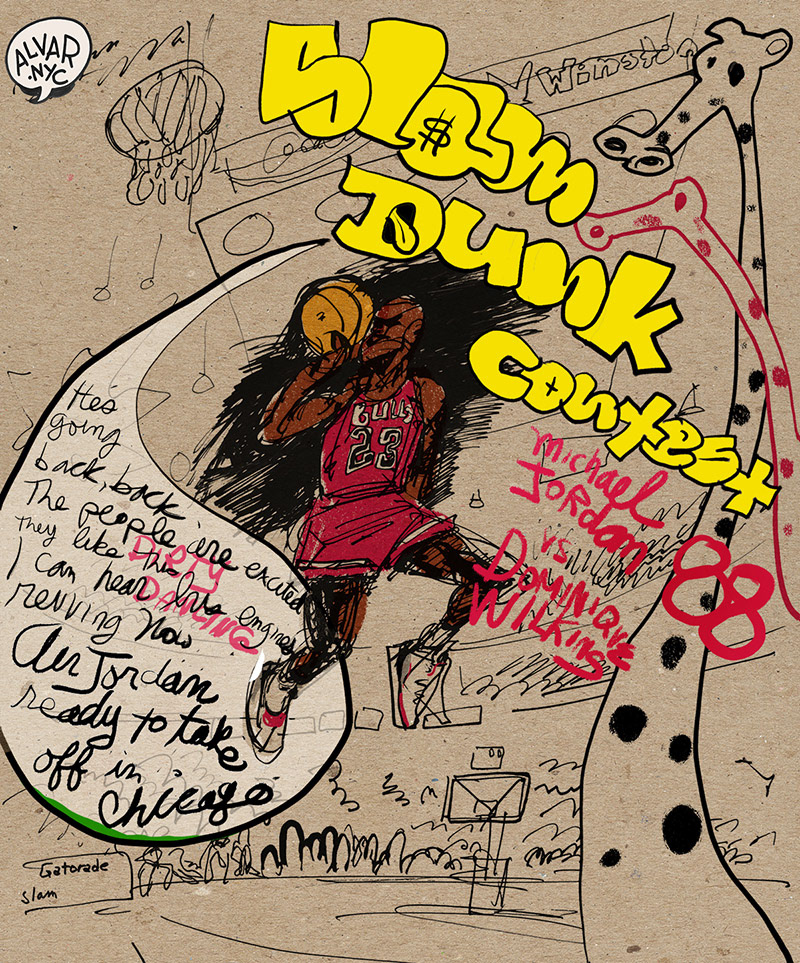 ALVAR
.NYC
Winston
Slam
Dunk
Contest
BULLS
23
He's
going
back, back
The people are excited
they like this
DIRTY
DANCING
I can hear his engines
revving now
Air Jordan
ready to take
off in
Chicago
Michael
JORDAN
vs
DOMINIQUE
WILKINS
88
Gatorade
slam